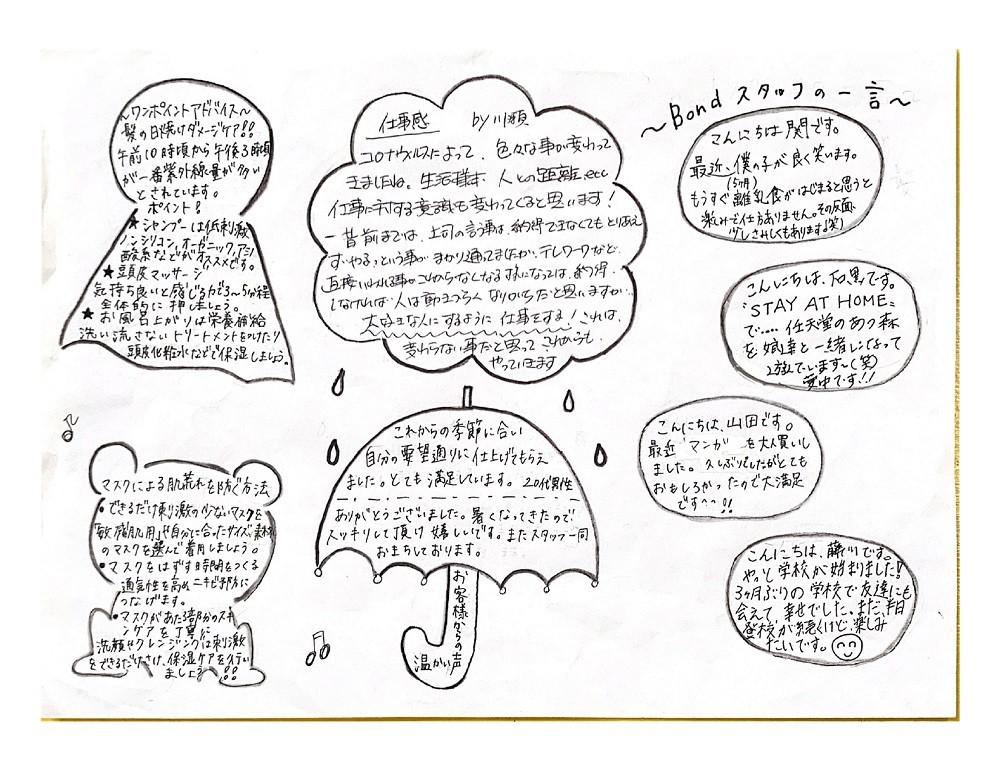 ~ワンポイントアドバイス~
髪の日焼けダメージケア!!
午前10時頃から午後3時頃
が一番紫外線量が多い
とされています。
ポイント!
★シャンプーは低刺激
ノンシリコン、オーガニック、アミノ
酸系などがオススメです。
★頭皮マッサージ
気持ち良いと感じるが3~5分程
全体的に押しましょう。
★お風呂上がりは栄養補給
洗い流さないトリートメントをつけたり
頭皮化粧水などで保湿しましょう。
仕事感 by川瀬
コロナウイルスによって、色々な事が変わって
きましたね。生活様本 人との距離、etc
仕事に対する意識も変わってくると思います!
一昔前までは、上司の言う事は、納得できなくてもとりあえ
ず、やる、という事が、まかり通ってましたが、テレワークなど、
直接いわれる事が、これからなくなるようになっては、納得
しなければ、人は動きづらくなりがちだと思いますが、
大好きな人にするように仕事をする!これは、
変わらない事だと思って これからも、
やっていきます
~Bond スタッフの一言~
こんにちは 関です。
最近、僕の子が良く笑います。
(5ヶ月)
もうすぐ離乳食がはじまると思うと
楽しみで仕方ありません。その反面、
少しさみしくもあります。(笑)
こんにちは、石黒です。
"STAY AT HOME"
で.... 任天堂のあつ森
を娘達と一緒になって
遊んでいます~(笑)
夢中です!!
こんにちは、山田です。
最近 マンガ を大人買いし
ました。久しぶりでしたがとても
おもしろかったので大満足
です^^!!
こんにちは、藤川です。
やっと学校が始まりました!
3ヶ月ぶりの学校で友達にも
会えて幸せでした。まだ、半日
登校が続くけど楽しみ
たいです。
マスクによる肌荒れを防ぐ方法
•できるだけ刺激の少ないマスクを
「敏感肌用」や自分に合ったサイズ、素材
のマスクを選んで着用しましょう。
•マスクをはずす時間をつくる
通気性を高めニキビ予防に
つなげます。
•マスクがあたる部分のスキ
ンケアを丁寧に
洗顔やクレンジングは刺激
をできるだけさけ、保湿ケアを行い
ましょう!!
これからの季節に合い
自分の要望通りに仕上げてもらえ
ました。とても満足しています。 20代男性
ありがとうございました。暑くなってきたので、
スッキリして頂け嬉しいです。またスタッフ一同
おまちしております。
お客様からの声
温かい